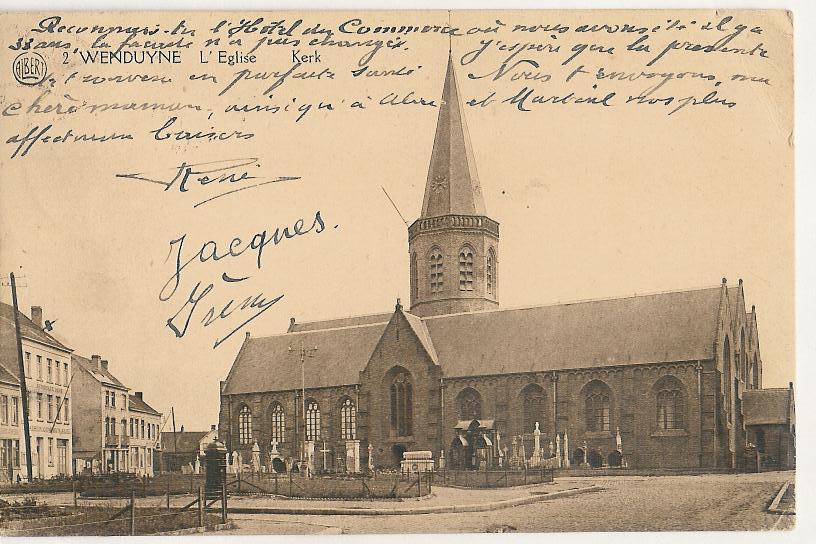 Reconnais-tu l'Hôtel du Commerce où nous avons été il y a
33 ans, la façade n'a pas changée. J'espère que la présente
ALBERT
2 WENDUYNE L'Eglise Kerk
te trouvera en parfaite santé Nous t'envoyons, ma
chère maman, ainsi qu'à et nos plus
affectueux baisers
René
Jacques.